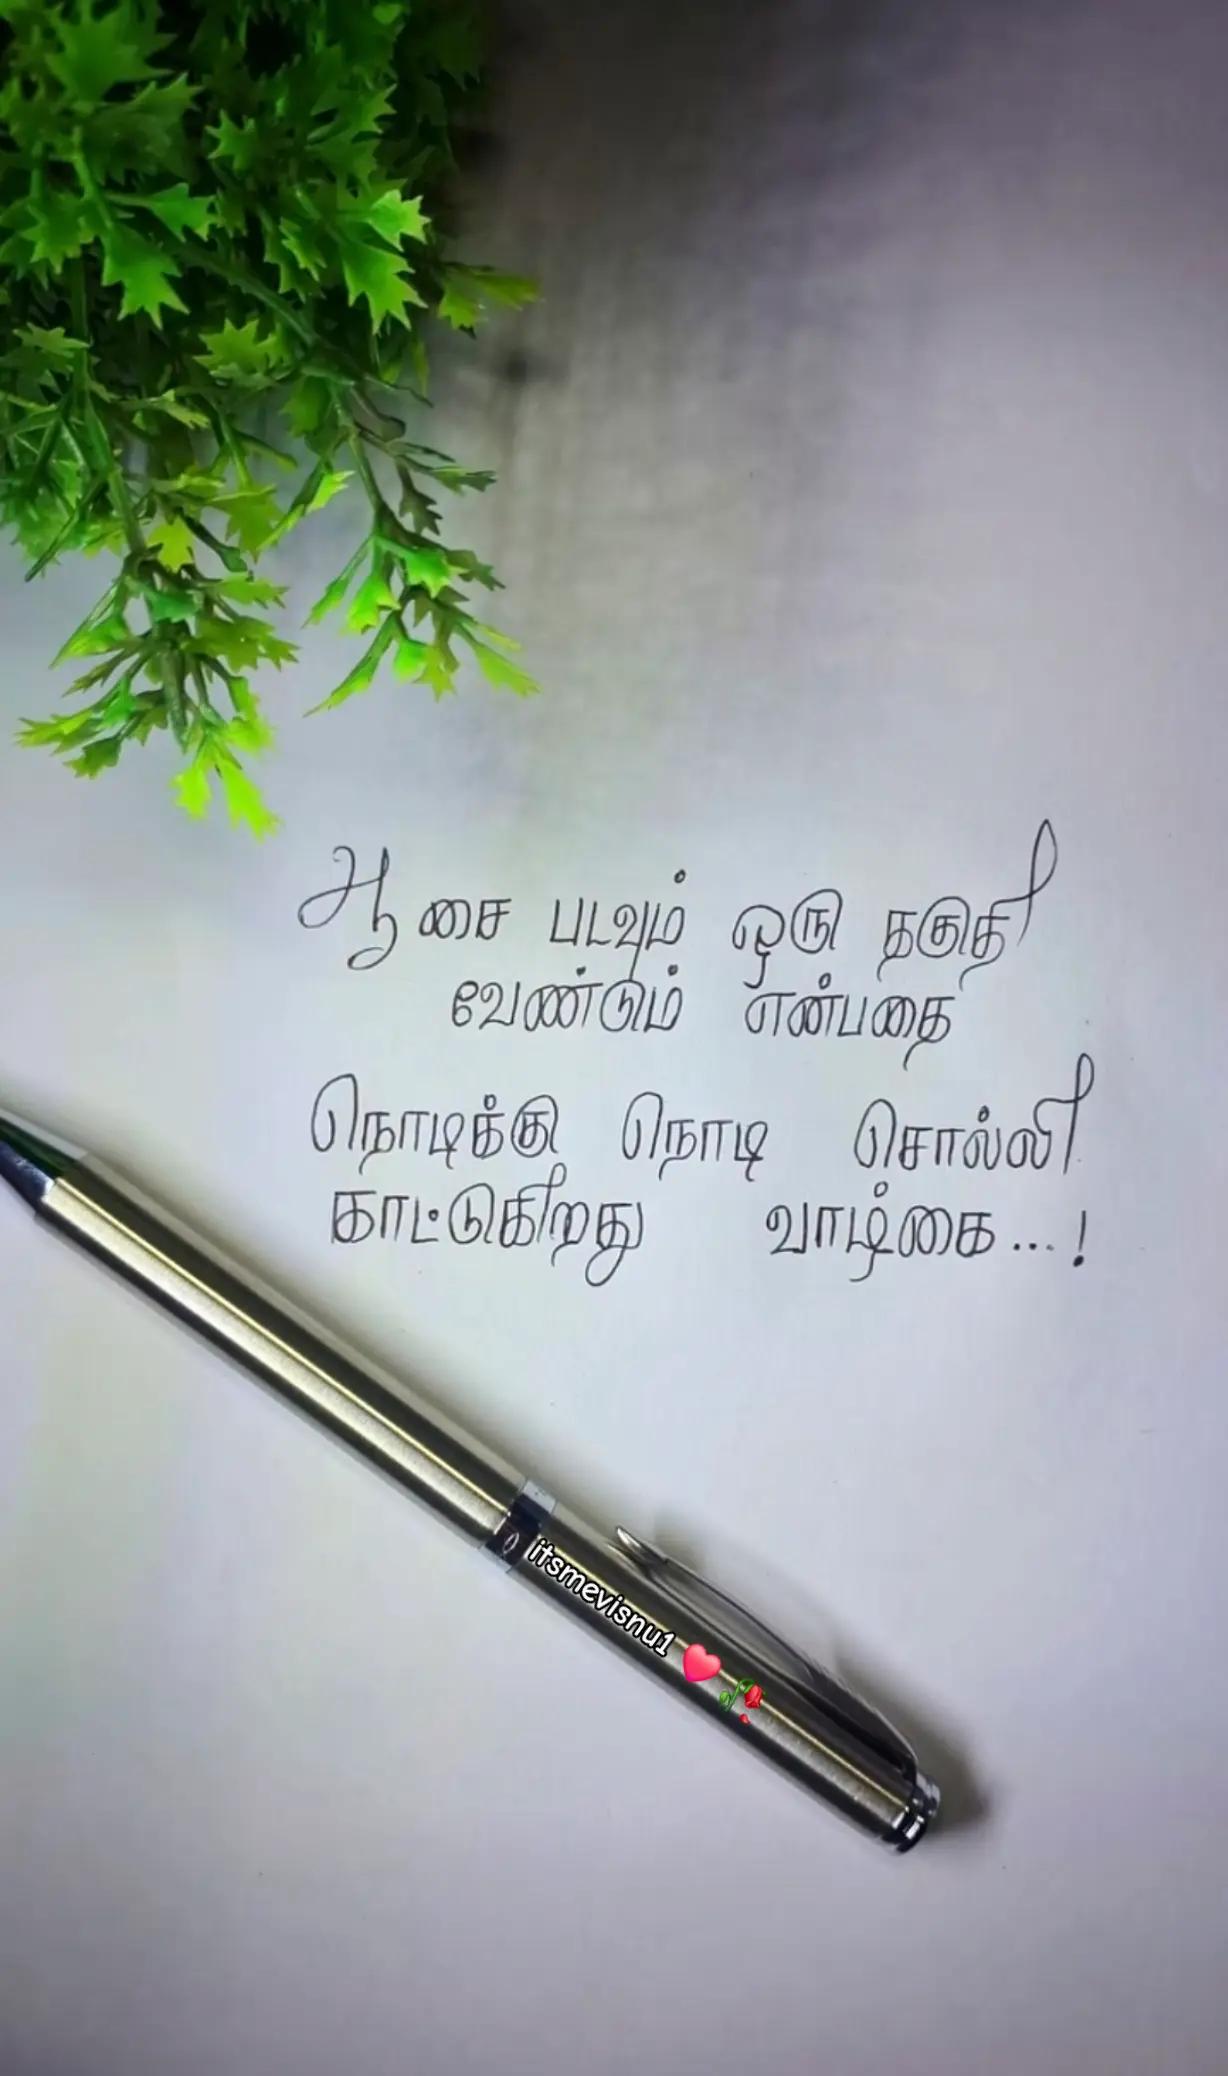 ஆசை படவும் ஒரு தகுதி
வேண்டும் என்பதை
நொடிக்கு நொடி சொல்லி
காட்டுகிறது வாழ்கை...!
itsmevisnu1